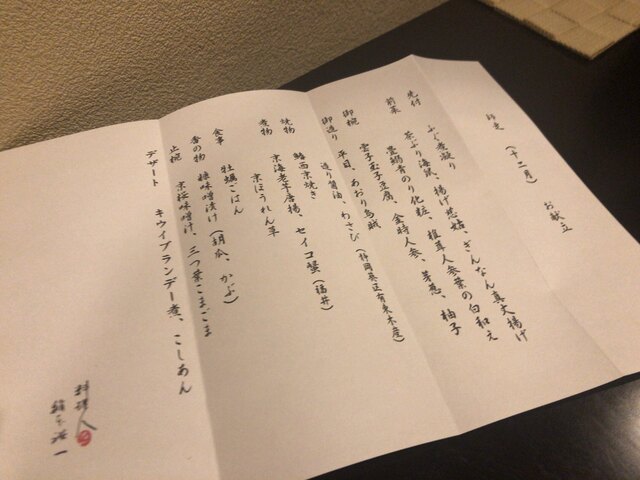 師走 (十二月) お献立
先付 ふぐ煮凝り
前菜 茶ぶり海鼠、揚げ慈姑、ぎんなん真丈揚げ
畳鰯青のり化粧、椎茸人参葉の白和え
御椀 雲子玉子豆腐、金時人参、芽葱、柚子
御造り 平目、あおり烏賊
造り醤油、わさび (静岡県区有東木産)
焼物 鰆西京焼き
煮物 京海老芋唐揚、セイコ蟹 (福井)
京ほうれん草
食事 牡蠣ごはん
香の物 糠味噌漬け (胡瓜、かぶ)
止椀 京桜味噌汁、三つ葉こまごま
デザート キウイブランデー煮、こしあん
料理人